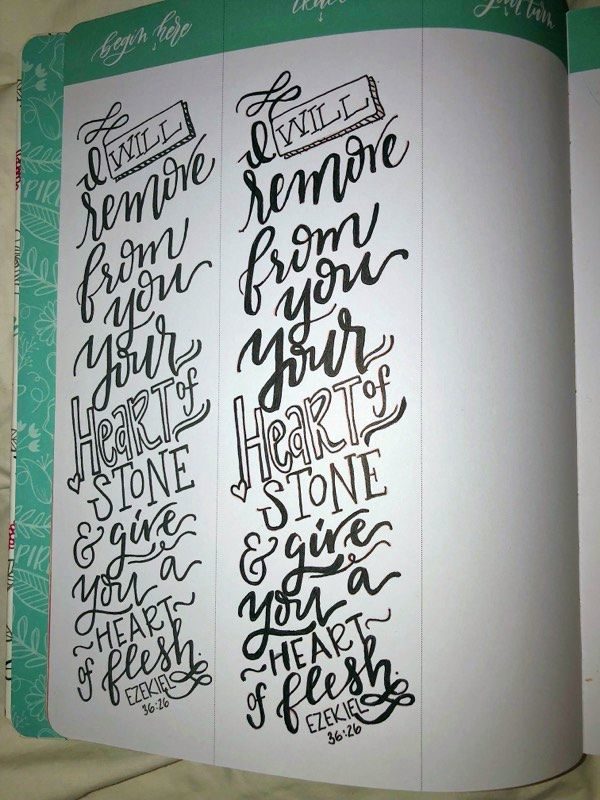 begin here
trace
your turn
I WILL
remove
from
you
your
HeaRT of
STONE
& give
you a
~HEART~
of flesh.
EZEKIEL
36:26
I WILL
remove
from
you
your
HeaRT of
STONE
& give
you a
~HEART~
of flesh.
EZEKIEL
36:26